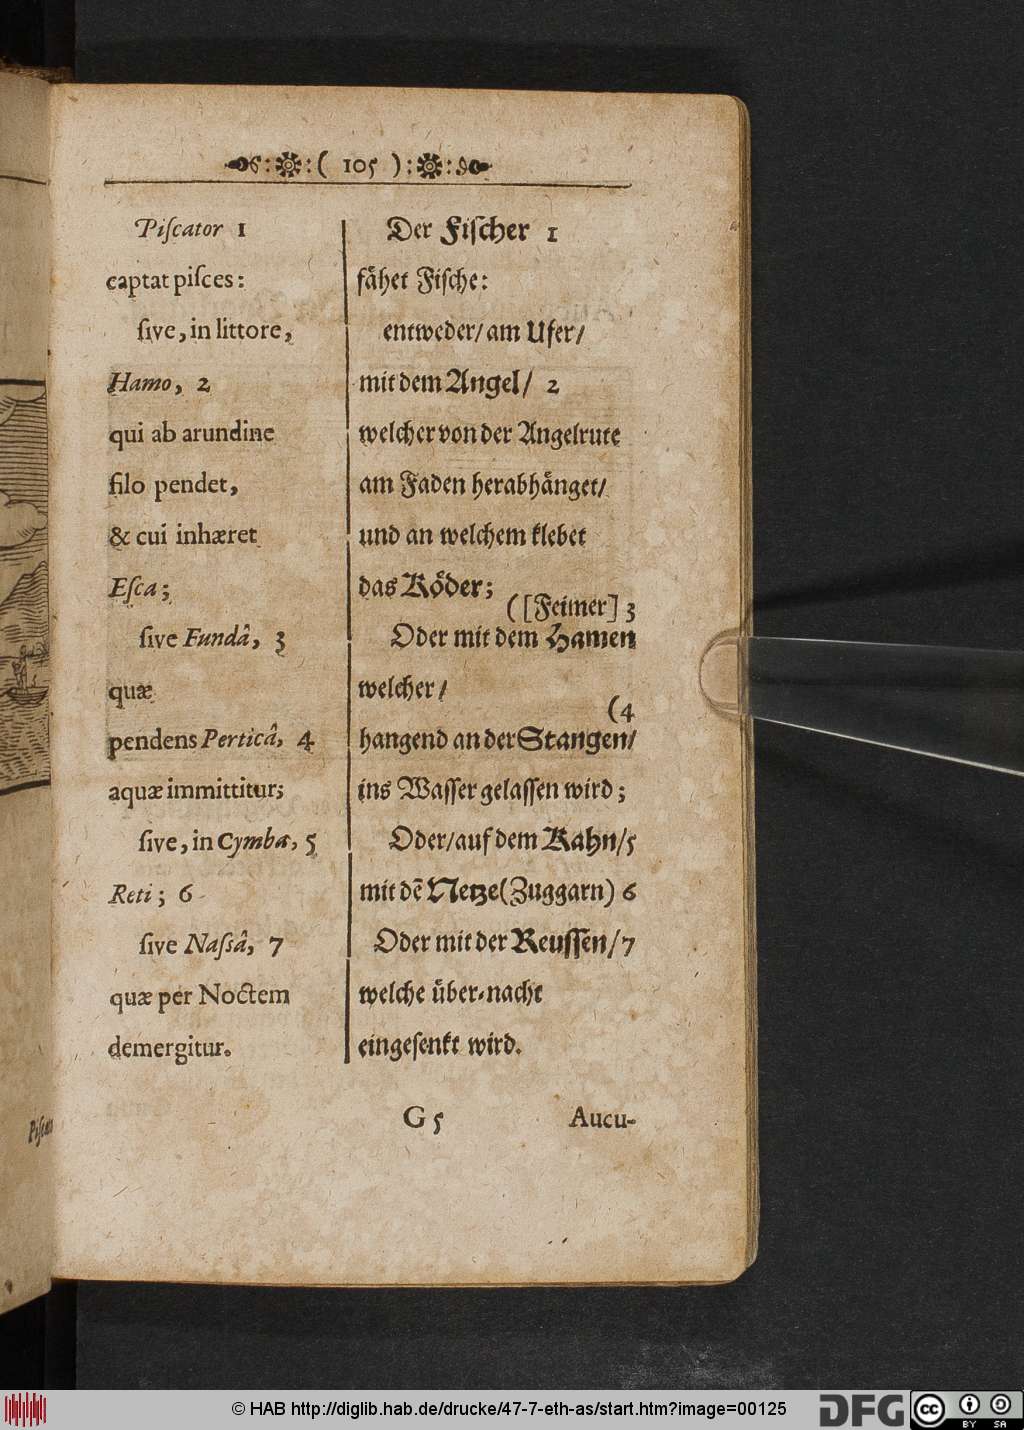 :( 105 ):
Piſcator 1
captat piſces:
ſive, in littore,
Hamo, 2
qui ab arundine
filo pendet,
& cui inhæret
Eſca;
ſive Fundâ, 3
quæ
pendens Perticâ, 4
aquæ immittitur;
ſive, in Cymba, 5
Reti; 6
ſive Naſsâ, 7
quæ per Noctem
demergitur.
Der Fiſcher 1
fåhet Fiſche:
entweder/ am Ufer/
mit dem Angel/ 2
welcher von der Angelrute
am Faden herabhånget/
und an welchem klebet
das Kôder;
([Feimer] 3
Oder mit dem Hamen
welcher/
(4
hangend an der Stangen/
ins Waſſer gelaſſen wird;
Oder/ auf dem Kahn/ 5
mit dē Netze (Zuggarn) 6
Oder mit der Reuſſen/ 7
welche uͤber-nacht
eingeſenkt wird.
G 5 Aucu-
Piſca
© HAB http://diglib.hab.de/drucke/47-7-eth-as/start.htm?image=00125
DFG
cc BY SA